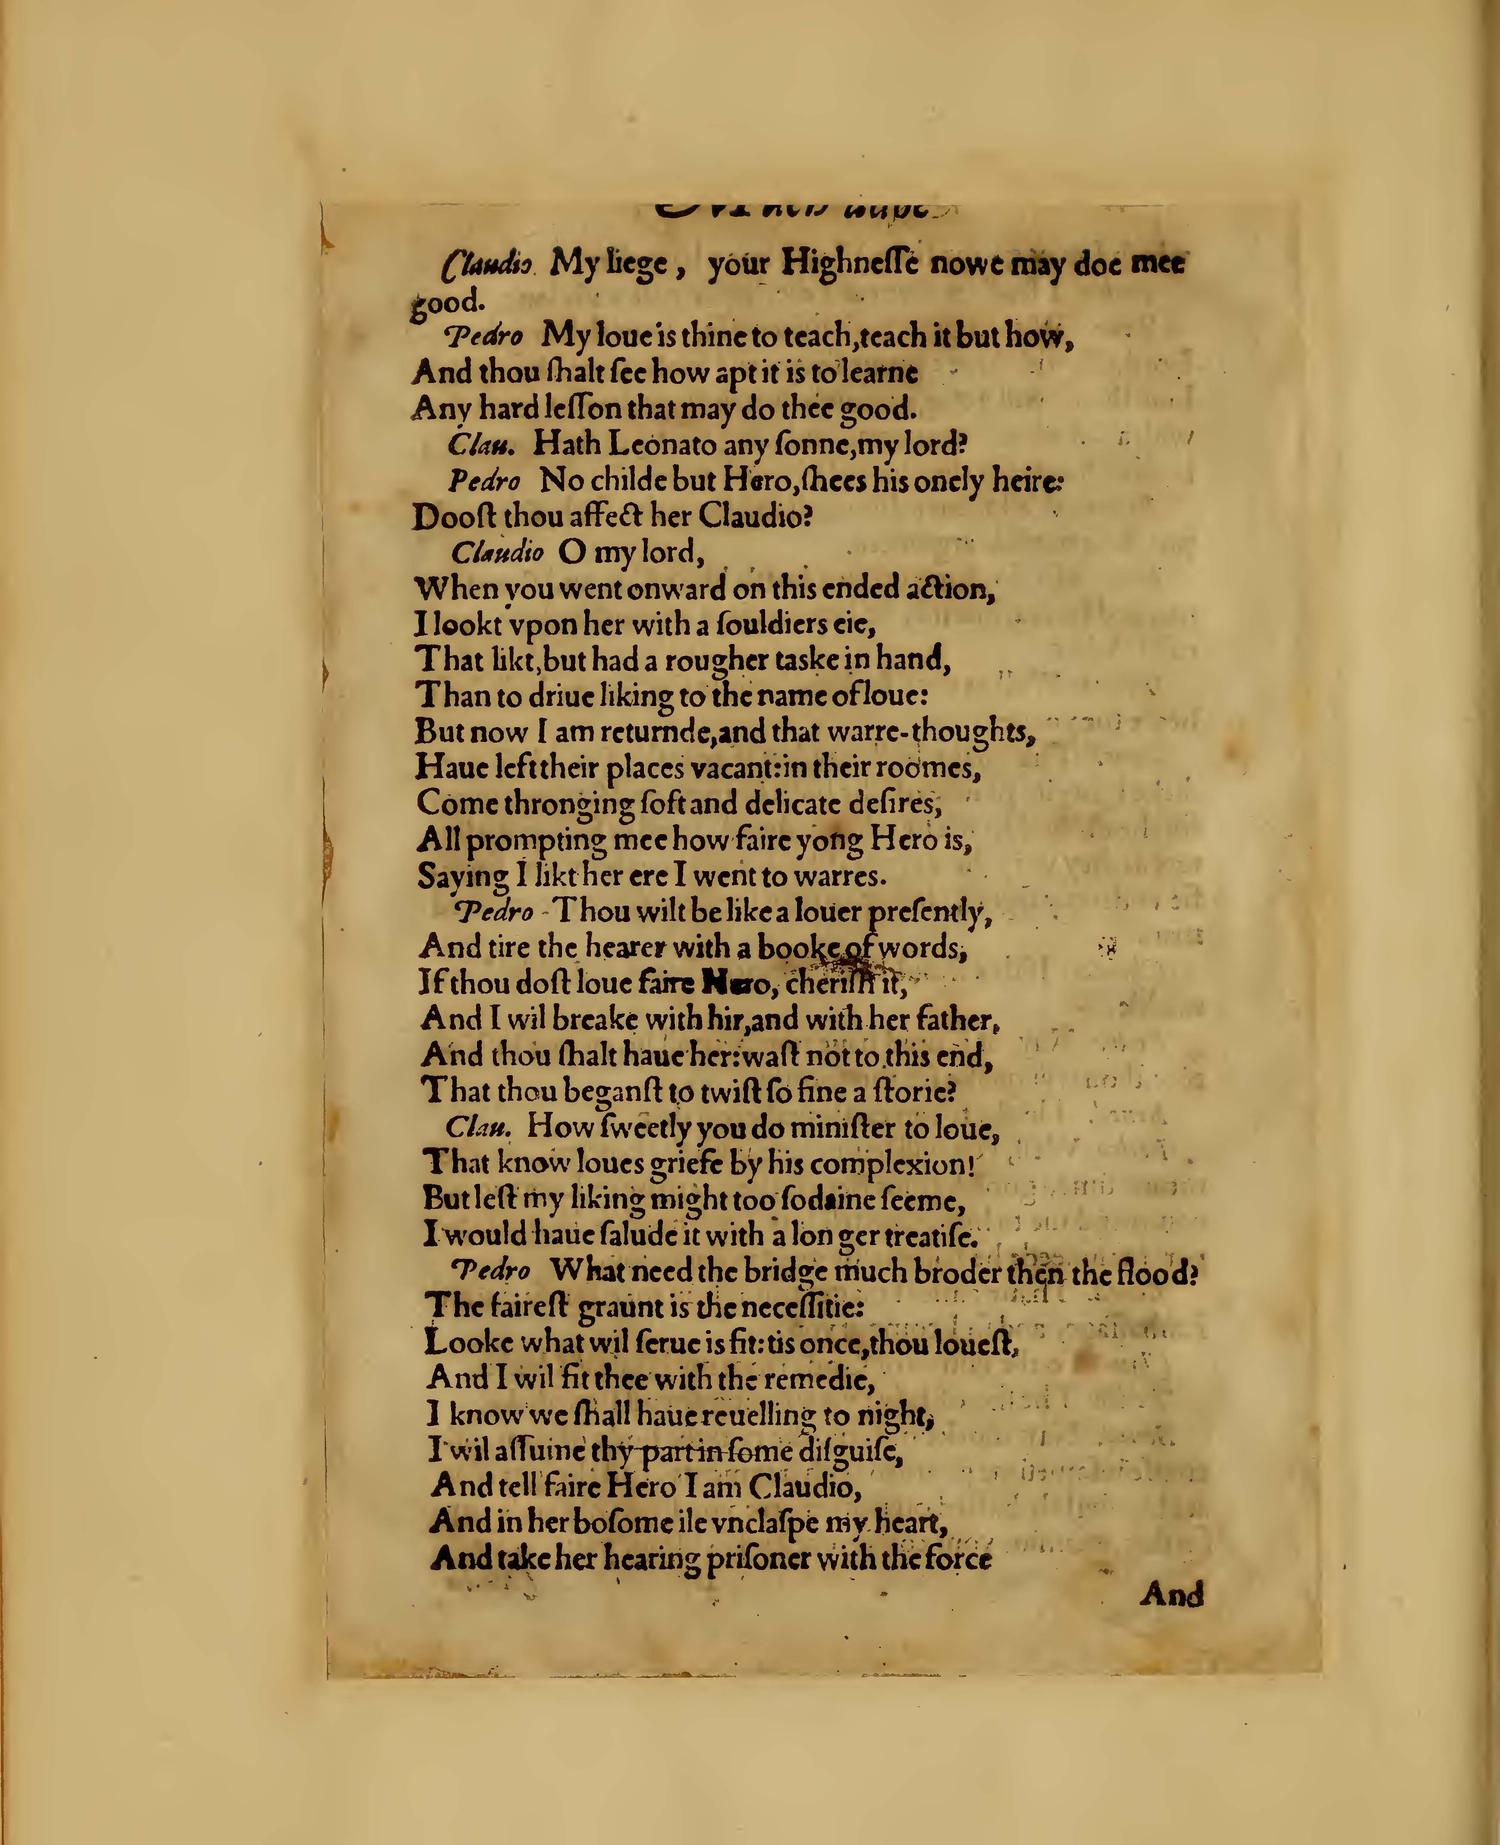 Much adoe
Claudio My liege, your Highneſſe nowe may doe mee
good.
Pedro My loue is thine to teach, teach it but how,
And thou ſhalt ſee how apt it is to learne
Any hard leſſon that may do thee good.
Clau. Hath Leonato any ſonne, my lord?
Pedro No childe but Hero, ſhees his onely heire:
Dooſt thou affect her Claudio?
Claudio O my lord,
When you went onward on this ended action,
I lookt vpon her with a ſouldiers eie,
That likt, but had a rougher taske in hand,
Than to driue liking to the name of loue:
But now I am returnde, and that warre-thoughts,
Haue left their places vacant: in their roomes,
Come thronging ſoft and delicate deſires,
All prompting mee how faire yong Hero is,
Saying I likt her ere I went to warres.
Pedro Thou wilt be like a louer preſently,
And tire the hearer with a booke of words,
If thou doſt loue faire Hero, cheriſh it,
And I wil breake with hir, and with her father,
And thou ſhalt haue her: waſt not to this end,
That thou beganſt to twiſt ſo fine a ſtorie?
Clau. How ſweetly you do miniſter to loue,
That know loues griefe by his complexion!
But leſt my liking might too ſodaine ſeeme,
I would haue ſalude it with a longer treatiſe.
Pedro What need the bridge much broder then the flood?
The faireſt graunt is the neceſſitie:
Looke what wil ſerue is fit: tis once, thou loueſt,
And I wil fit thee with the remedie,
I know we ſhall haue reuelling to night,
I wil aſſume thy part in ſome diſguiſe,
And tell faire Hero I am Claudio,
And in her boſome ile vnclaſpe my heart,
And take her hearing priſoner with the force
And